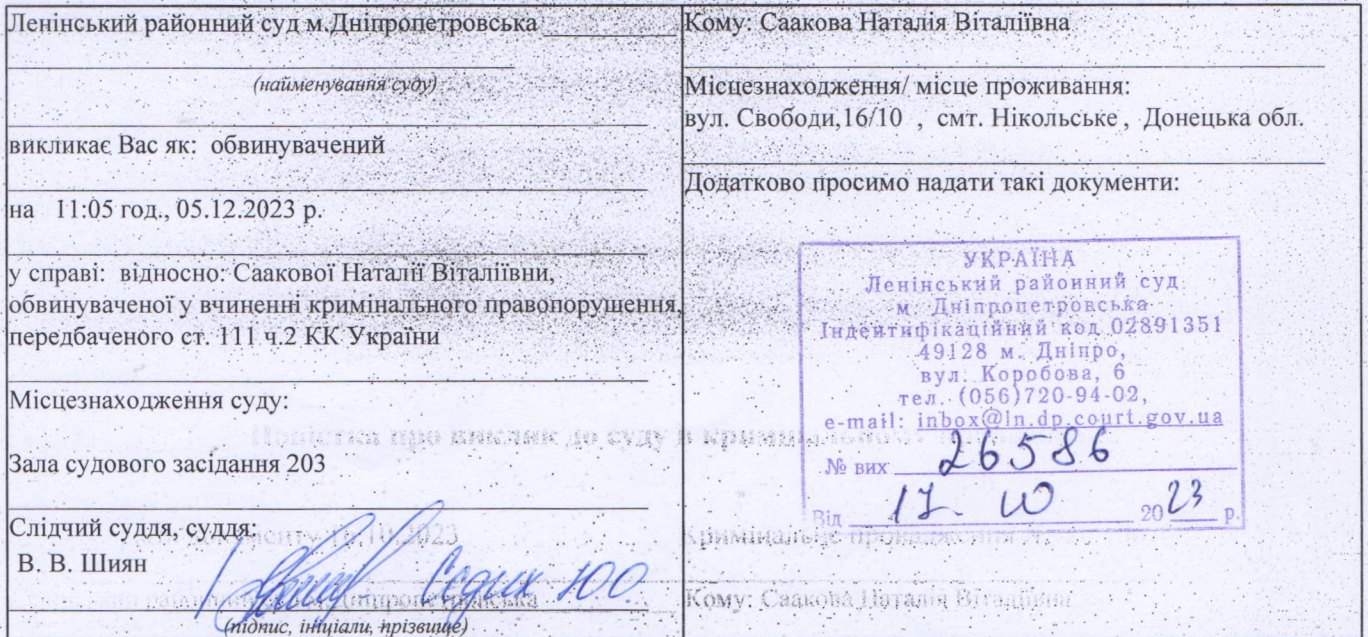 Ленінський районний суд м.Дніпропетровська
(найменування суду)
викликає Вас як: обвинувачений
на 11:05 год., 05.12.2023 р.
у справі: відносно: Саакової Наталії Віталіївни,
обвинуваченої у вчиненні кримінального правопорушення,
передбаченого ст. 111 ч.2 КК України
Місцезнаходження суду:
Зала судового засідання 203
Слідчий суддя, суддя:
В. В. Шиян
Седих Ю.О.
(підпис, ініціали, прізвище)
Кому: Саакова Наталія Віталіївна
Місцезнаходження/ місце проживання:
вул. Свободи,16/10 , смт. Нікольське , Донецька обл.
Додатково просимо надати такі документи:
УКРАЇНА
Ленінський районний суд
м. Дніпропетровська
Індентифікаційний код 02891351
49128 м. Дніпро,
вул. Коробова, 6
тел. (056)720-94-02,
e-mail: inbox@ln.dp.court.gov.ua
№ вих 26586
Від 17. 10 2023 р.
Повістка про виклик до суду в кримінальному
10.2023
Кримінальне провадження
районний м.Дніпропетровська
Кому: Саакова Наталія Віталіївна